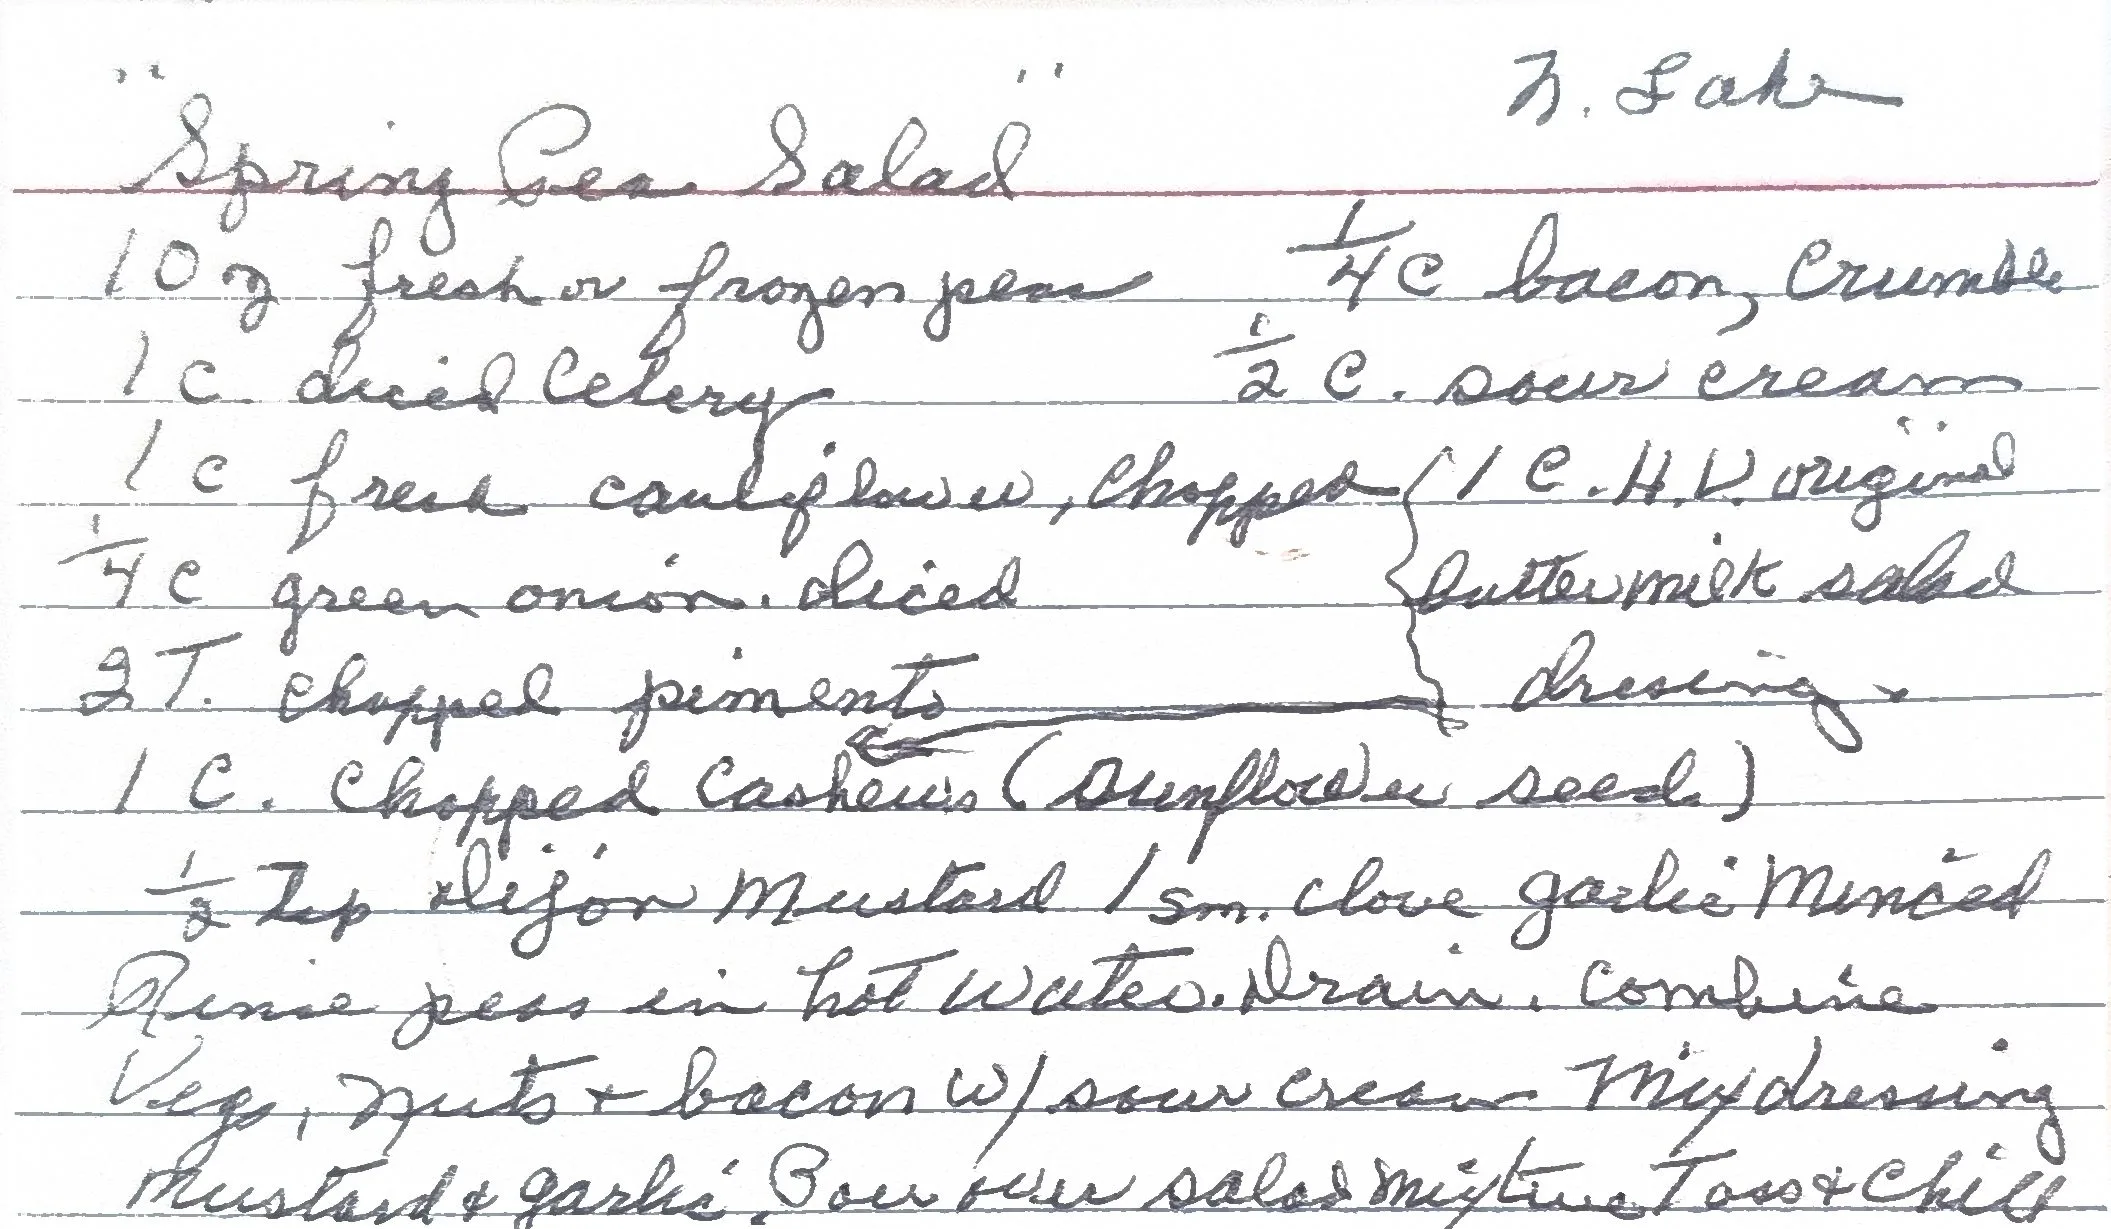 N. Lake
"Spring Pea Salad"
10 oz fresh or frozen peas 1/4 C bacon, crumble
1 C diced Celery 1/2 C. sour cream
1 C fresh cauliflower, chopped { 1 C. H.V. original
1/4 C green onion. diced buttermilk salad
2 T. chopped pimento dressing.
1 C. chopped cashews (sunflower seeds)
1/2 Tsp dijon Mustard 1 sm. clove garlic Minced
Rinse peas in hot water. Drain. Combine
Veg, nuts + bacon w/ sour cream Mix dressing
Mustard & garlic. Pour over salad mixture Toss & Chill